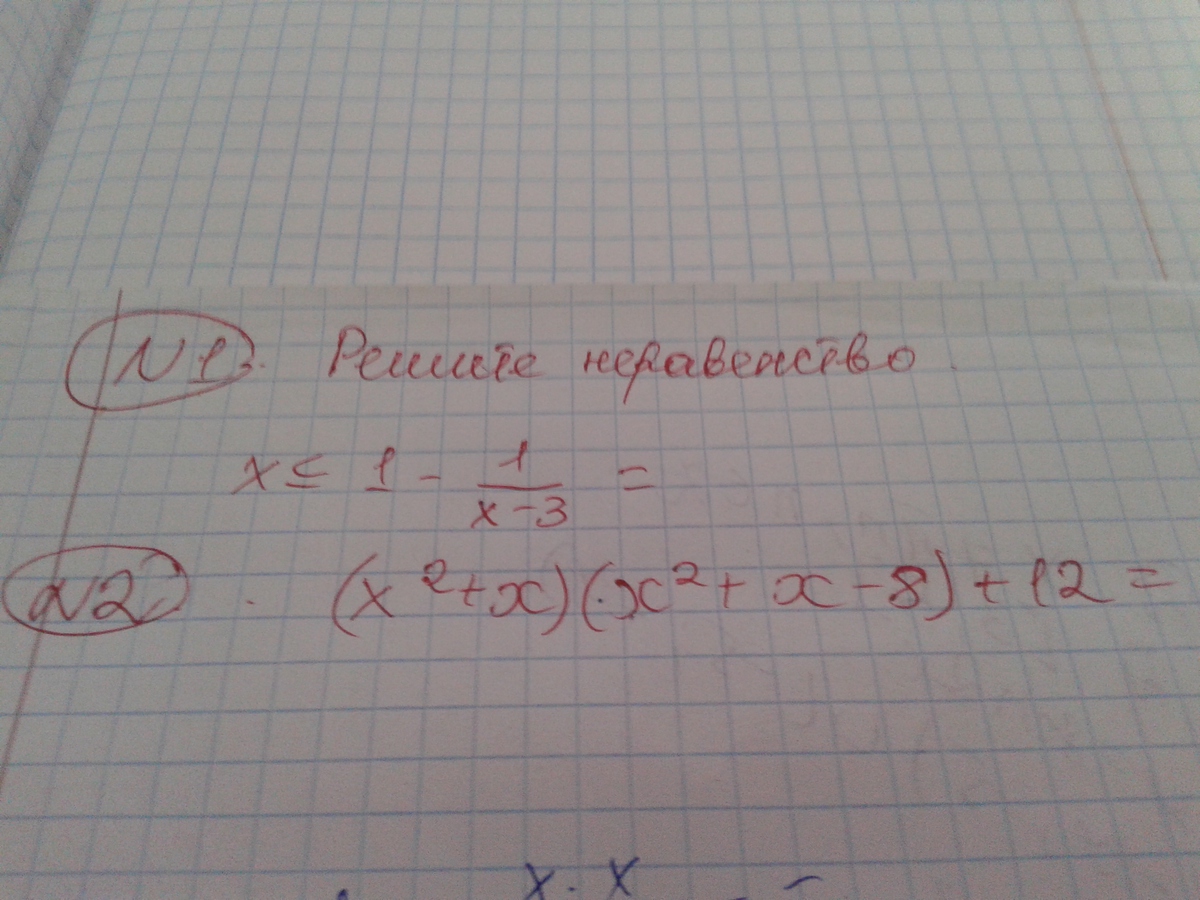 N1. Решите неравенство.
x ≤ 1 - 1/(x-3) =
N2. (x²+x)(x²+x-8)+12=
x . x